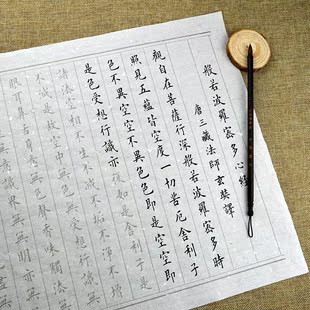 般若波羅蜜多心經
唐三藏法師玄奘譯
觀自在菩薩行深般若波羅蜜多時
照見五蘊皆空度一切苦厄舍利子
色不異空空不異色色即是空空即
是色受想行識亦復如是舍利子是
諸法空相不生不滅不垢不淨不增
不減是故空中無色無受想行識無
眼耳鼻舌身意無色聲香味觸法無